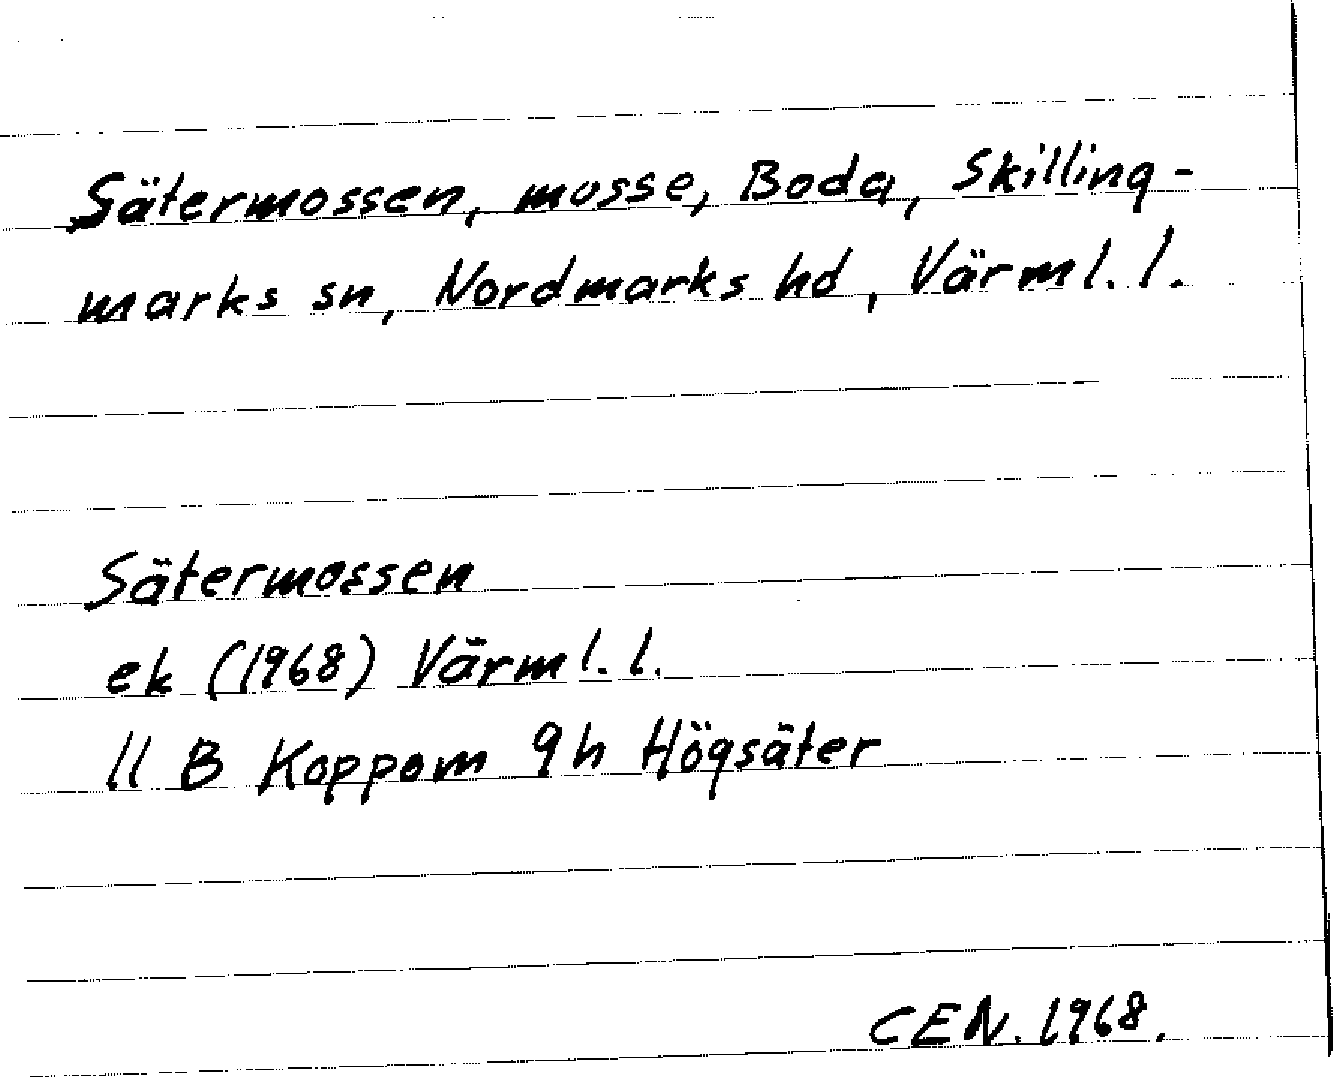 Sätermossen, mosse, Boda, Skilling-
marks sn, Nordmarks hd, Värml. l.
Sätermossen
ek (1968) Värml. l.
11 B Koppom 9h Högsäter
CEN. 1968.